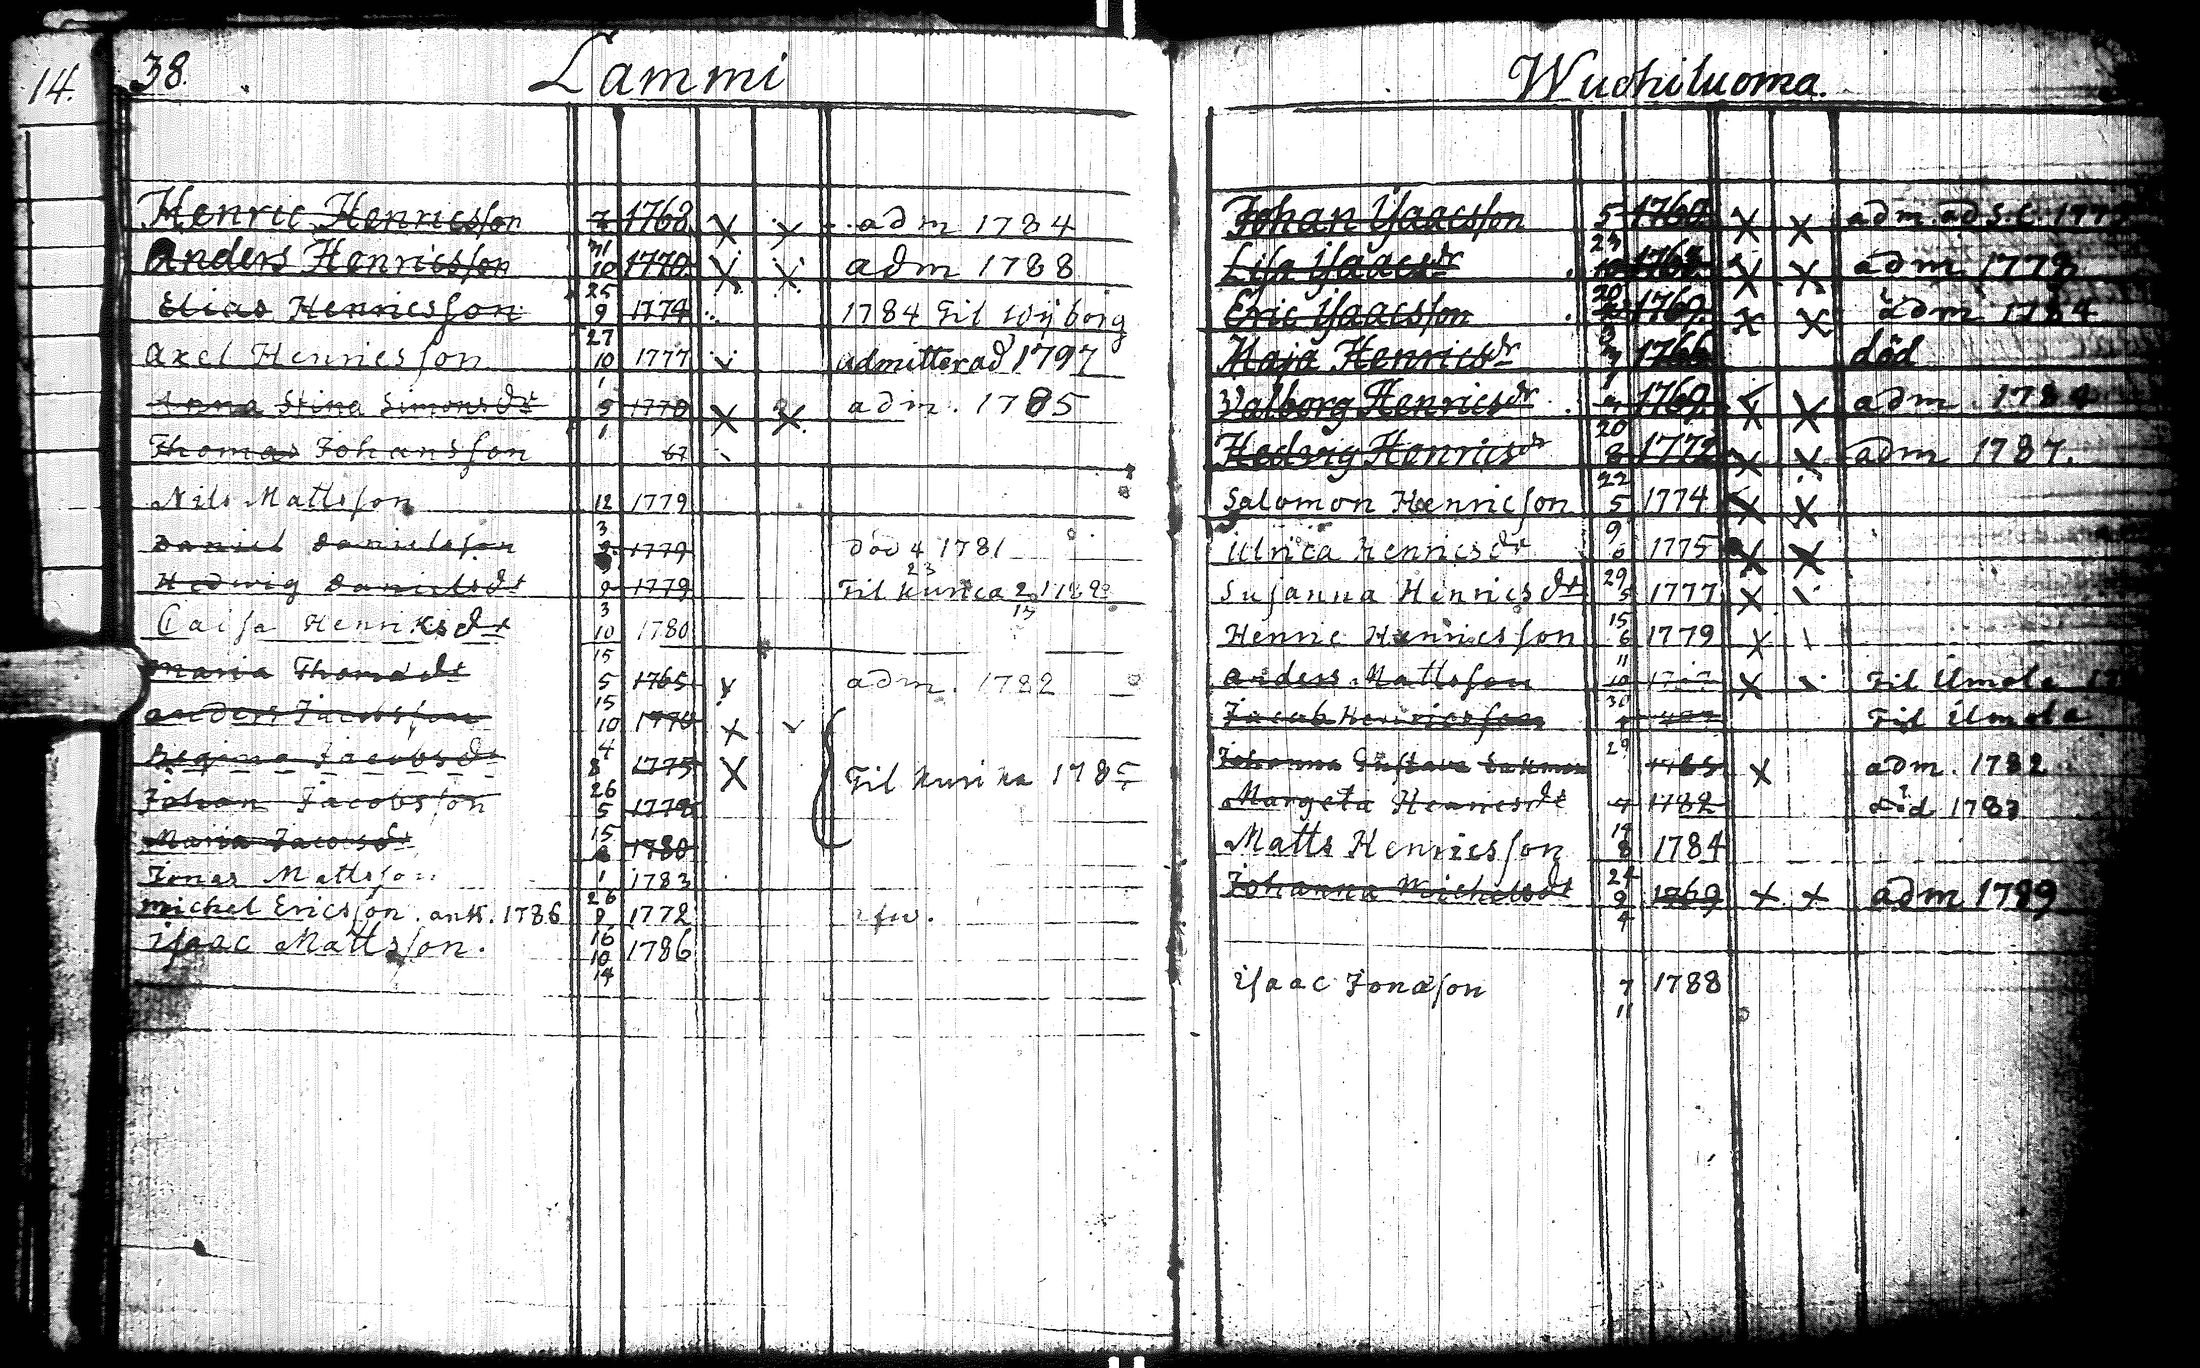 14.
38.
Lammi
Henric Henricsson 7 1768 adm 1784
31
Anders Henricsson 10 1770 adm 1788
25
Elias Henricsson 9 1774 1784 Til Wijborg
27
Axel Henricsson 10 1777 admitterad 1797
1
Anna Stina Simonsdr 5 1770 adm. 1785
1
Thomas Johansson 67
Nils Mattsson 12 1779
3
Daniel Danielsson 1779 död 4 1781
23
Hedwig Danielsdr 9 1779 Til Kurica
3
Caisa Henriksdr 10 1780
15
Maria Thomædr 5 1765 adm. 1782
15
Anders Jacobsson 10 1770
4
Regina Jacobsdr 8 1775 Til Kurika 1785
26
Johan Jacobsson 5 1778
15
Maria Jacobsdr 1780
Jonas Mattsson 1 1783
26
Michel Ericsson. ank. 1786 8 1772
16
Isaac Mattsson. 10 1786
14
Wuohiluoma.
Johan Isaacsson 5 1760 adm. ad S.C.
23
Lisa Isaacsdr 10 1768 adm 1778
20
Eric Isaacsson 1769 adm 1784
3
Maja Henricsdr 1766 död
Walborg Henricsdr 1769 adm. 1784
20
Hedvig Henricsdr 8 1772 adm 1787.
22
Salomon Henricsson 5 1774
9
Ulrica Henricsdr 6 1775
29
Susanna Henricsdr 5 1777
15
Henric Henricsson 6 1779
11
Anders Mattsson 10 Til Ilmola
30
Jacob Henricsson Til Ilmola
29
Johanna Gustava 1765 adm. 1782
Margeta Henricsdr 7 1782 död 1783
14
Matts Henricsson 8 1784
24
Johanna Michelsdr 9 1769 adm 1789
4
Isaac Jonasson 7 1788
11